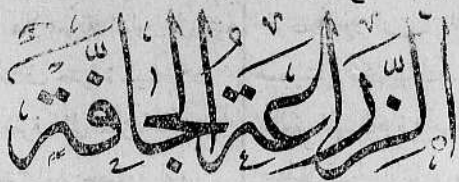 الزِّرَاعَةُ الجَافَّة